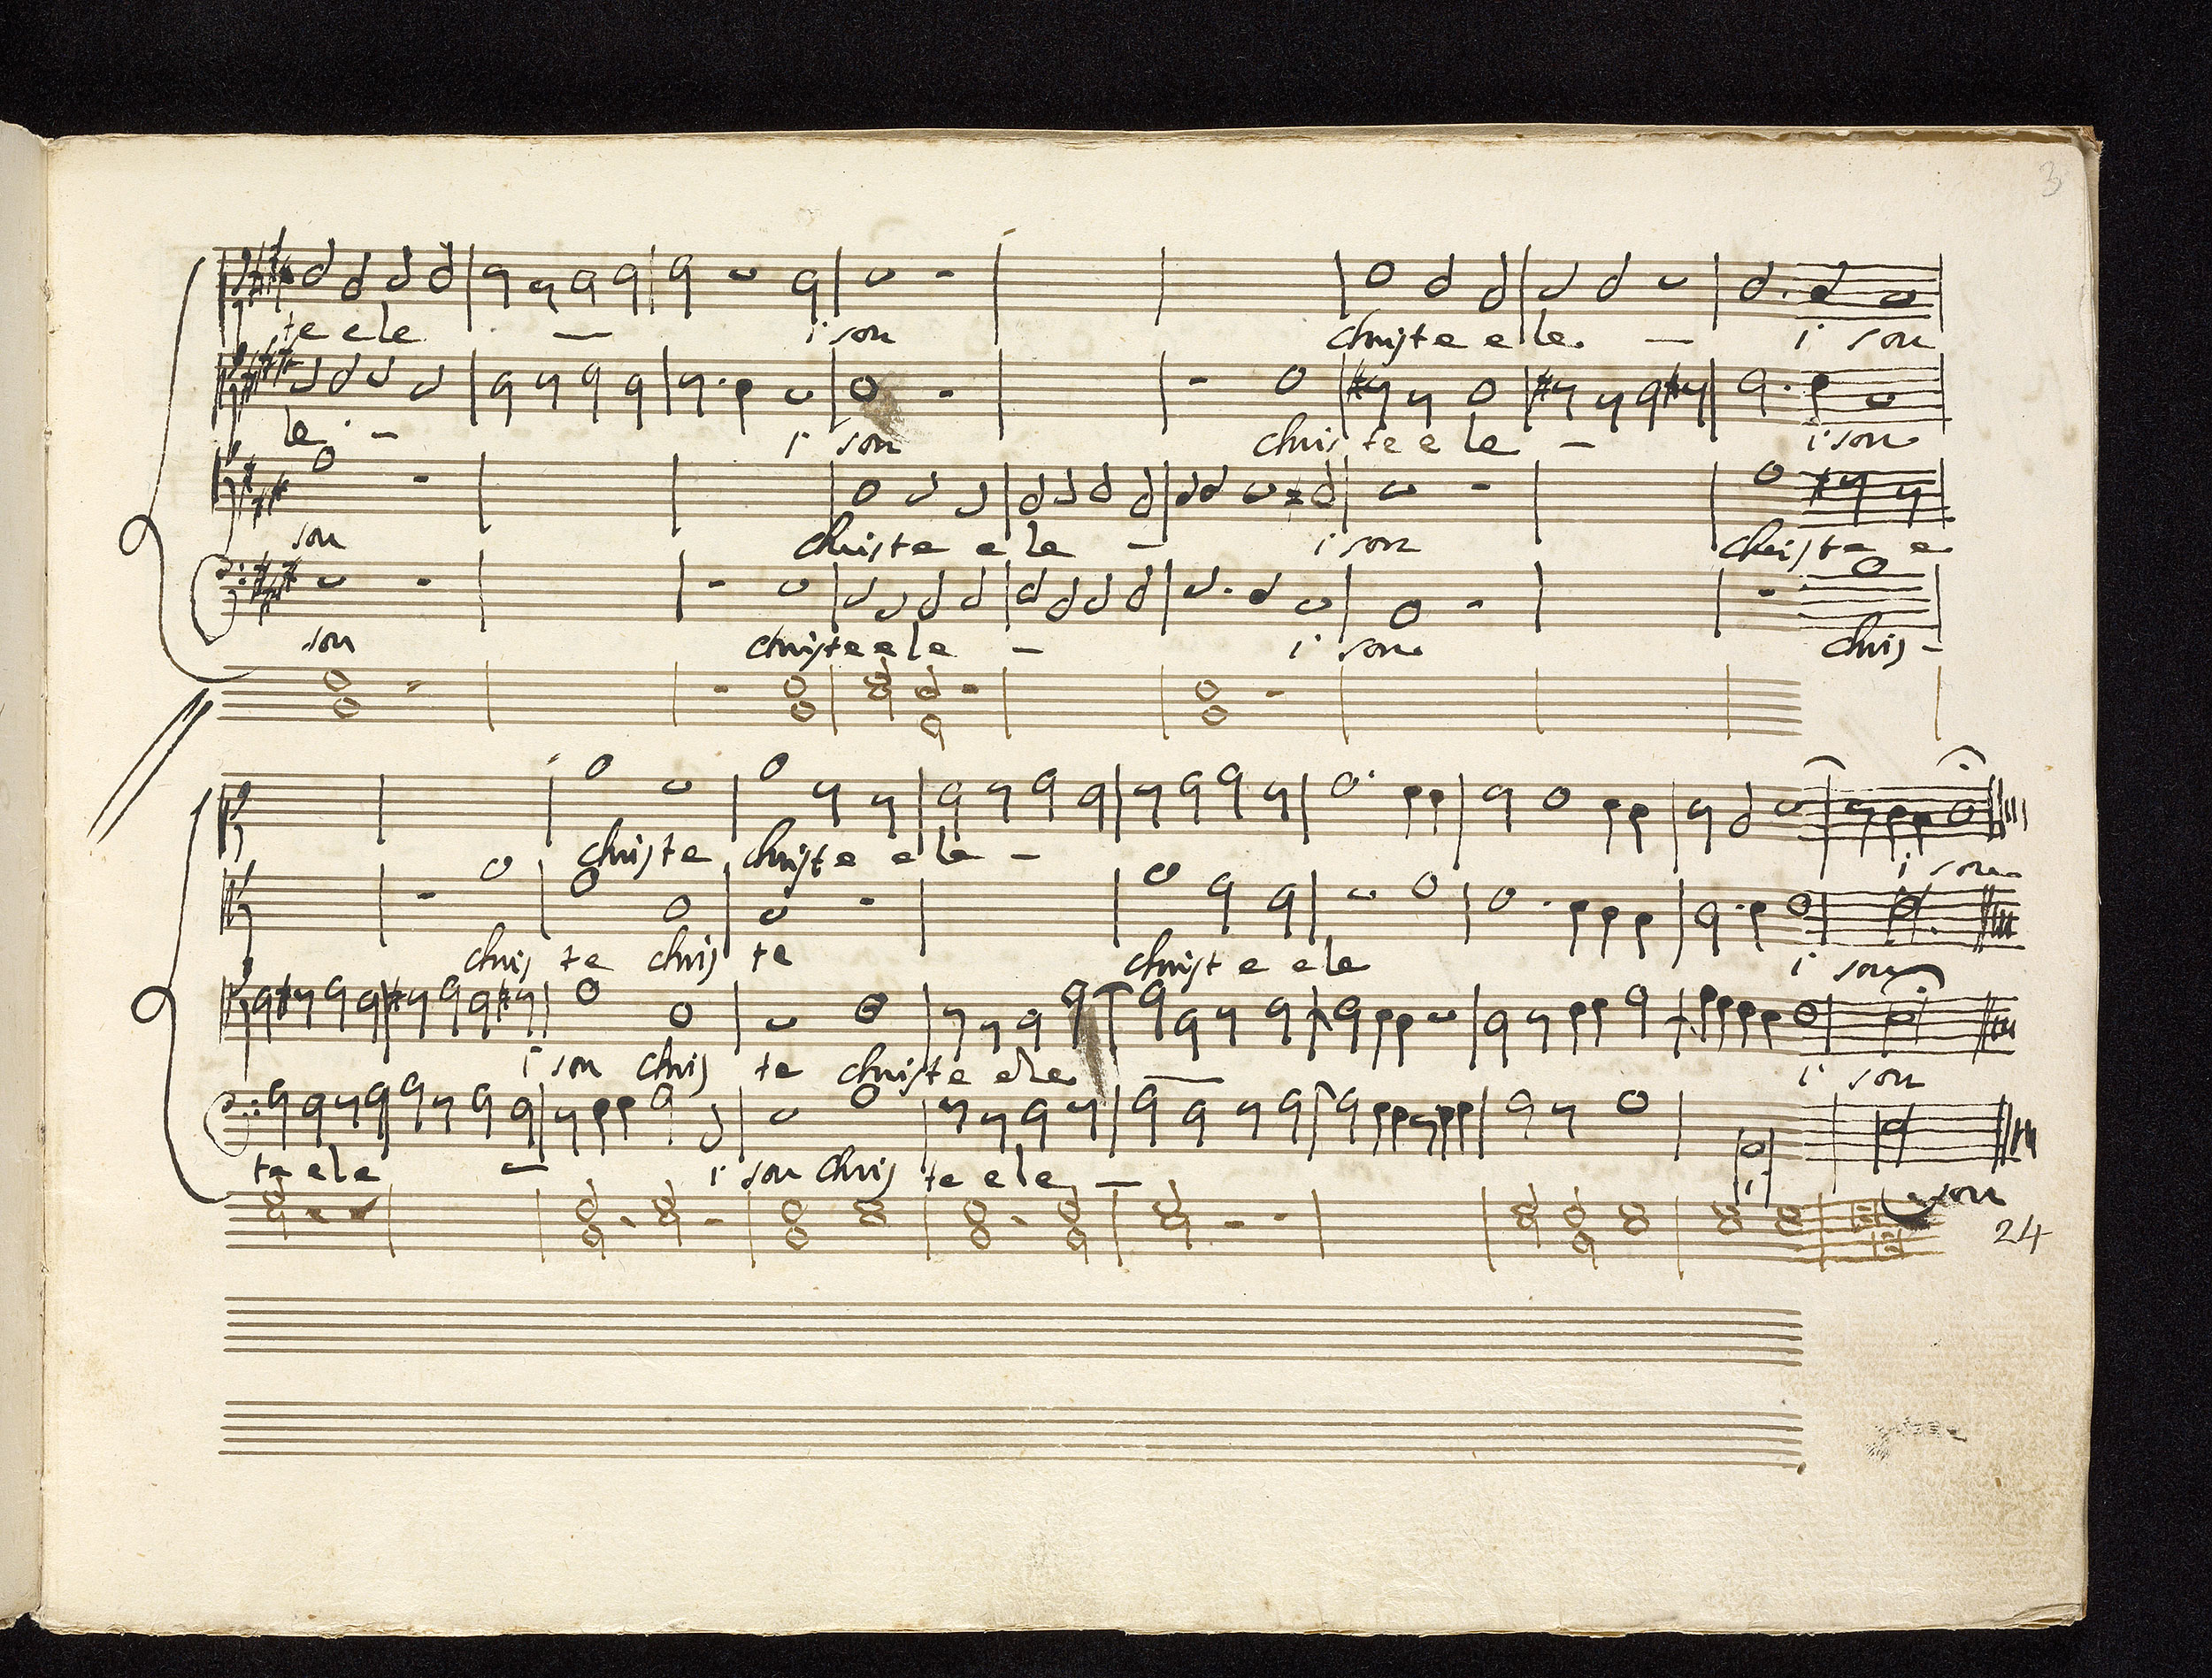 3
te e le — i son christe e le — i son
le - i son chris te e le - i son
son christe e le - i son christe e
son christe e le - i son chris -
christe christe e le - i son
chris te chris te christe e le i son
i son chris te christe ele — i son
te ele — i son chris te e le — i son
24